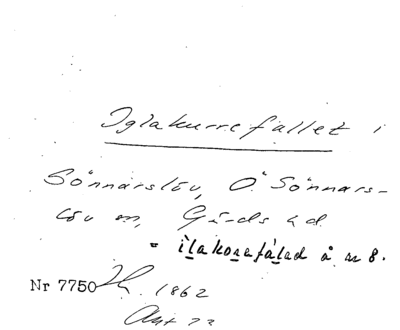 Iglakurrefallet i
Sönnarslöv, Ö Sönnars-
löv sn, Gärds hd.
= ilakorefálad å nr 8.
Nr 7750 1862